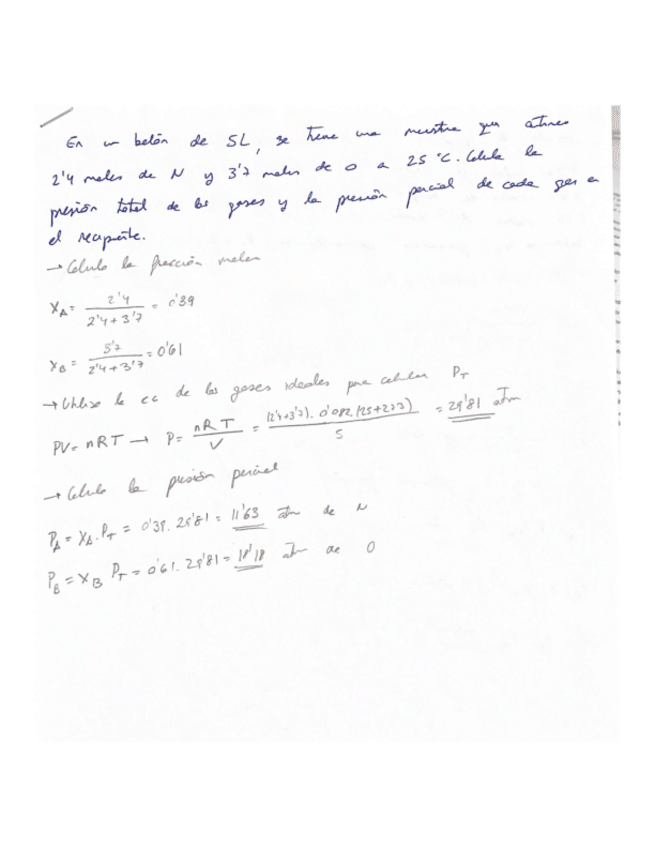 En un balón de 5L, se tiene una muestra que contiene
2'4 moles de N y 3'7 moles de O a 25 °C. Calcula la
presión total de los gases y la presión parcial de cada gas en
el recipiente.
→ Calculo la fracción molar
X_A = 2'4 / 2'4+3'7 = 0'39
X_B = 3'7 / 2'4+3'7 = 0'61
→ Utilizo la ec de los gases ideales para calcular P_T
PV = nRT → P = nRT / V = (2'4+3'7).0'082.(25+273) / 5 = 29'81 atm
→ Calculo la presión parcial
P_A = X_A.P_T = 0'39.29'81 = 11'63 atm de N
P_B = X_B P_T = 0'61.29'81 = 18'18 atm de O